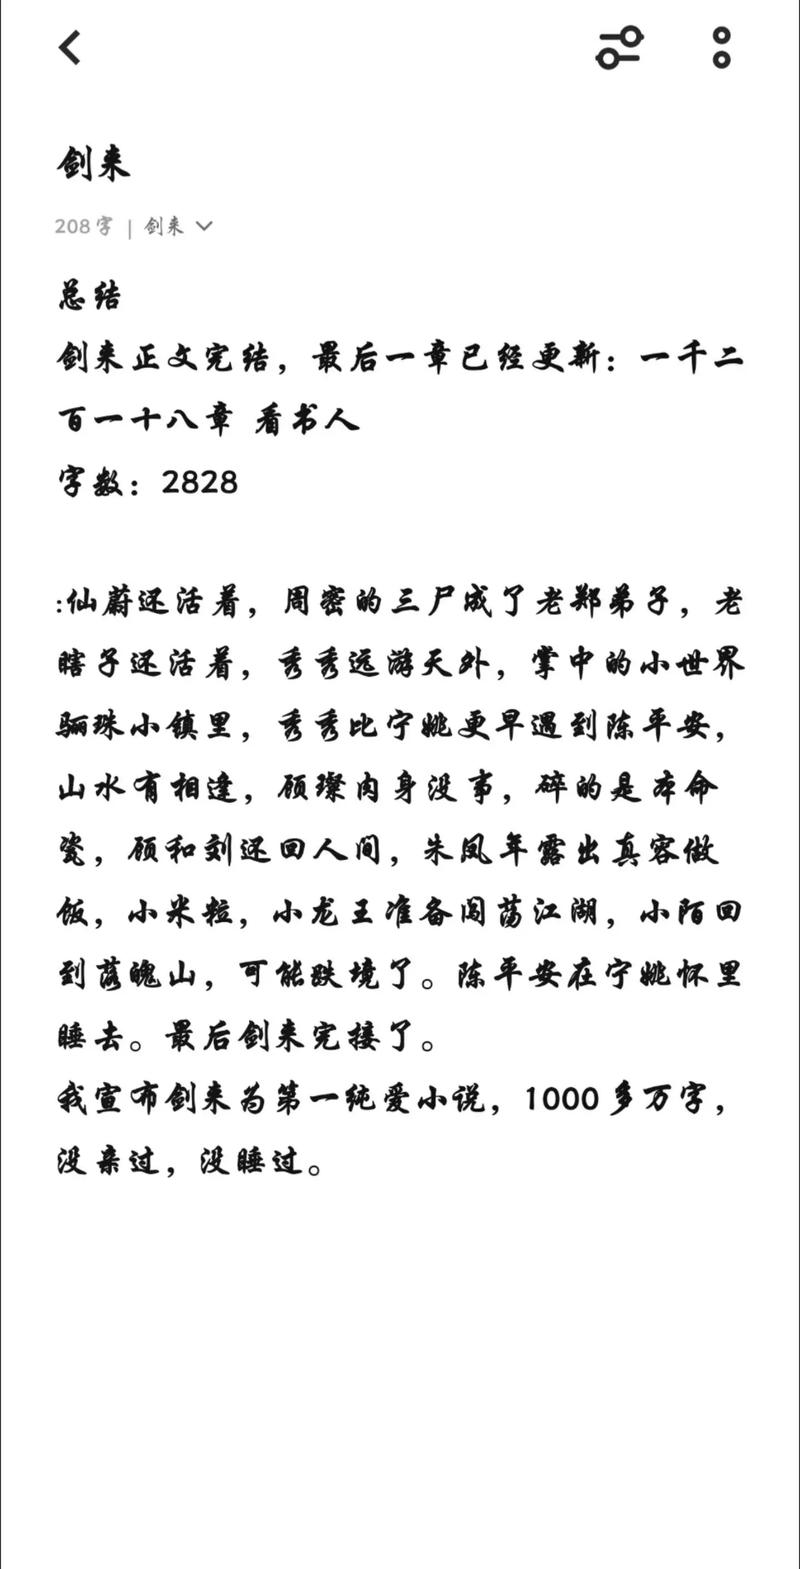 剑来
208字 | 剑来
总结
剑来正文完结，最后一章已经更新：一千二
百一十八章 看书人
字数：2828
:仙蔚还活着，周密的三尸成了老郑弟子，老
瞎子还活着，秀秀远游天外，掌中的小世界
骊珠小镇里，秀秀比宁姚更早遇到陈平安，
山水有相逢，顾璨肉身没事，碎的是本命
瓷，顾和刘还回人间，朱凤年露出真容做
饭，小米粒，小龙王准备闯荡江湖，小陌回
到落魄山，可能跌境了。陈平安在宁姚怀里
睡去。最后剑来完接了。
我宣布剑来为第一纯爱小说，1000多万字，
没亲过，没睡过。